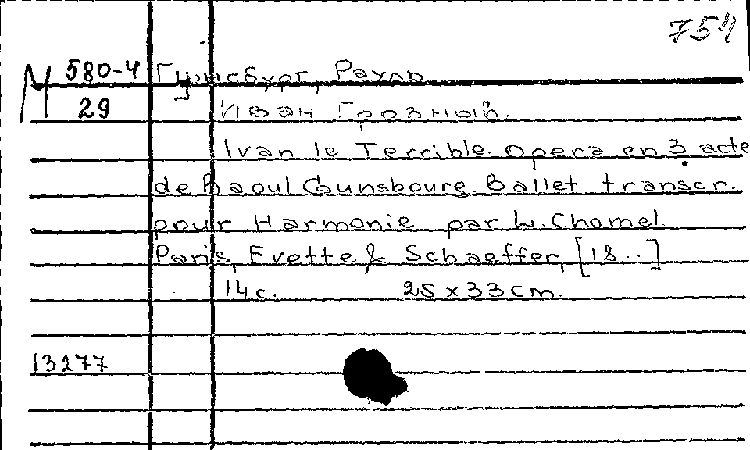 754
М 580-4 Гунсбург, Рауль
29 Иван Грозный.
Ivan le Terrible. Opera en 3 acte
de Raoul Gunsbourg. Ballet transcr.
pour Harmonie par L. Chomel
Paris, Evette & Schaeffer, [18..]
14 с. 25 x 33 cm.
13277